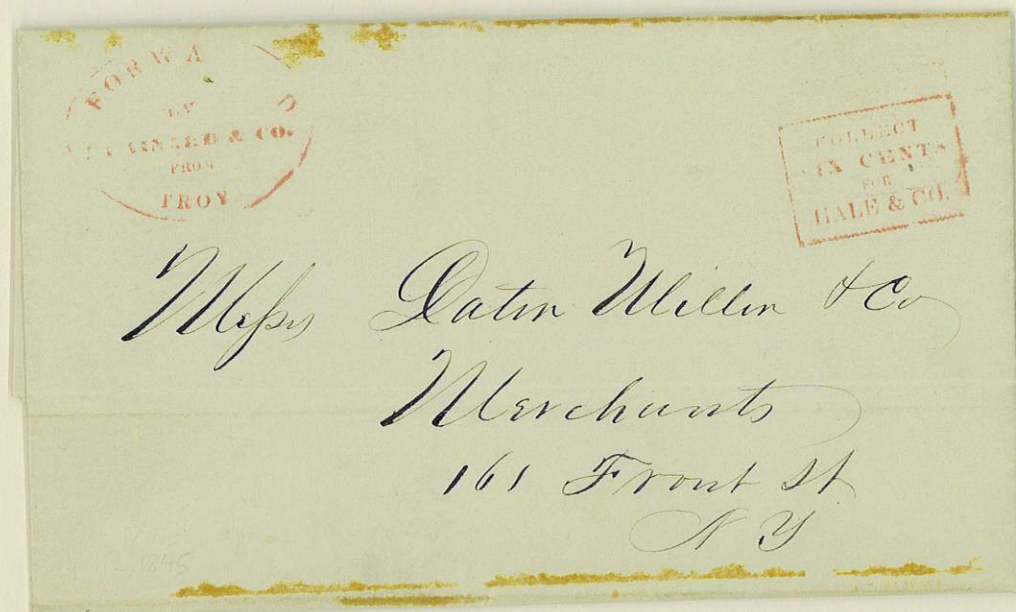 FORWA D
BY
AINARD & CO.
FROM
TROY
COLLECT
SIX CENTS
FOR
HALE & CO.
Messrs Daton Miller & Co
Merchants
161 Front St
N Y
1845